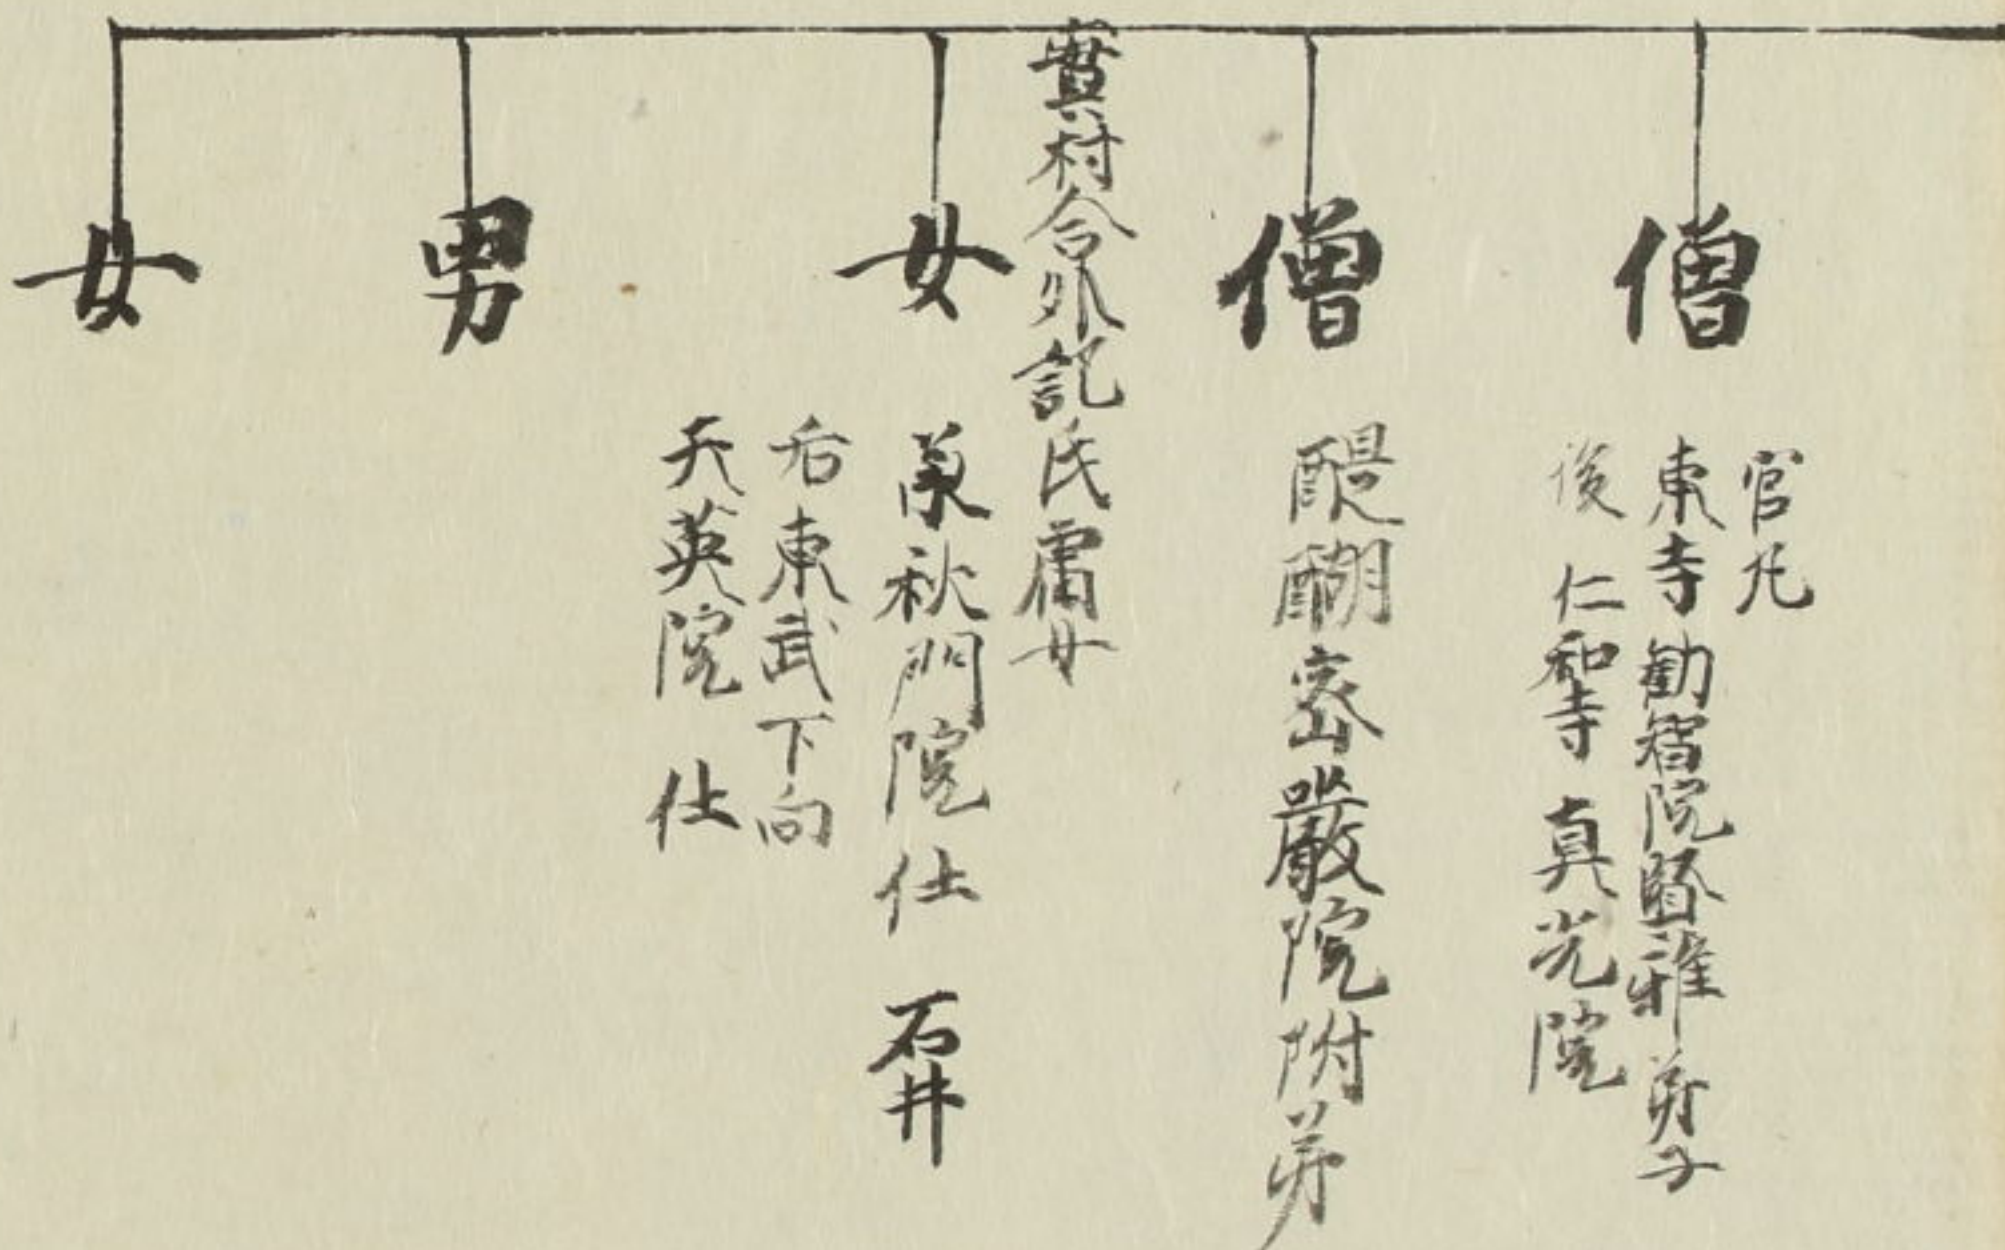 僧
官丸
東寺勧智院賢雅弟子
後仁和寺真光院
僧
醍醐密厳院附弟
實村合外記氏庸女
女
承秋門院仕 石井
后東武下向
天英院 仕
男
女